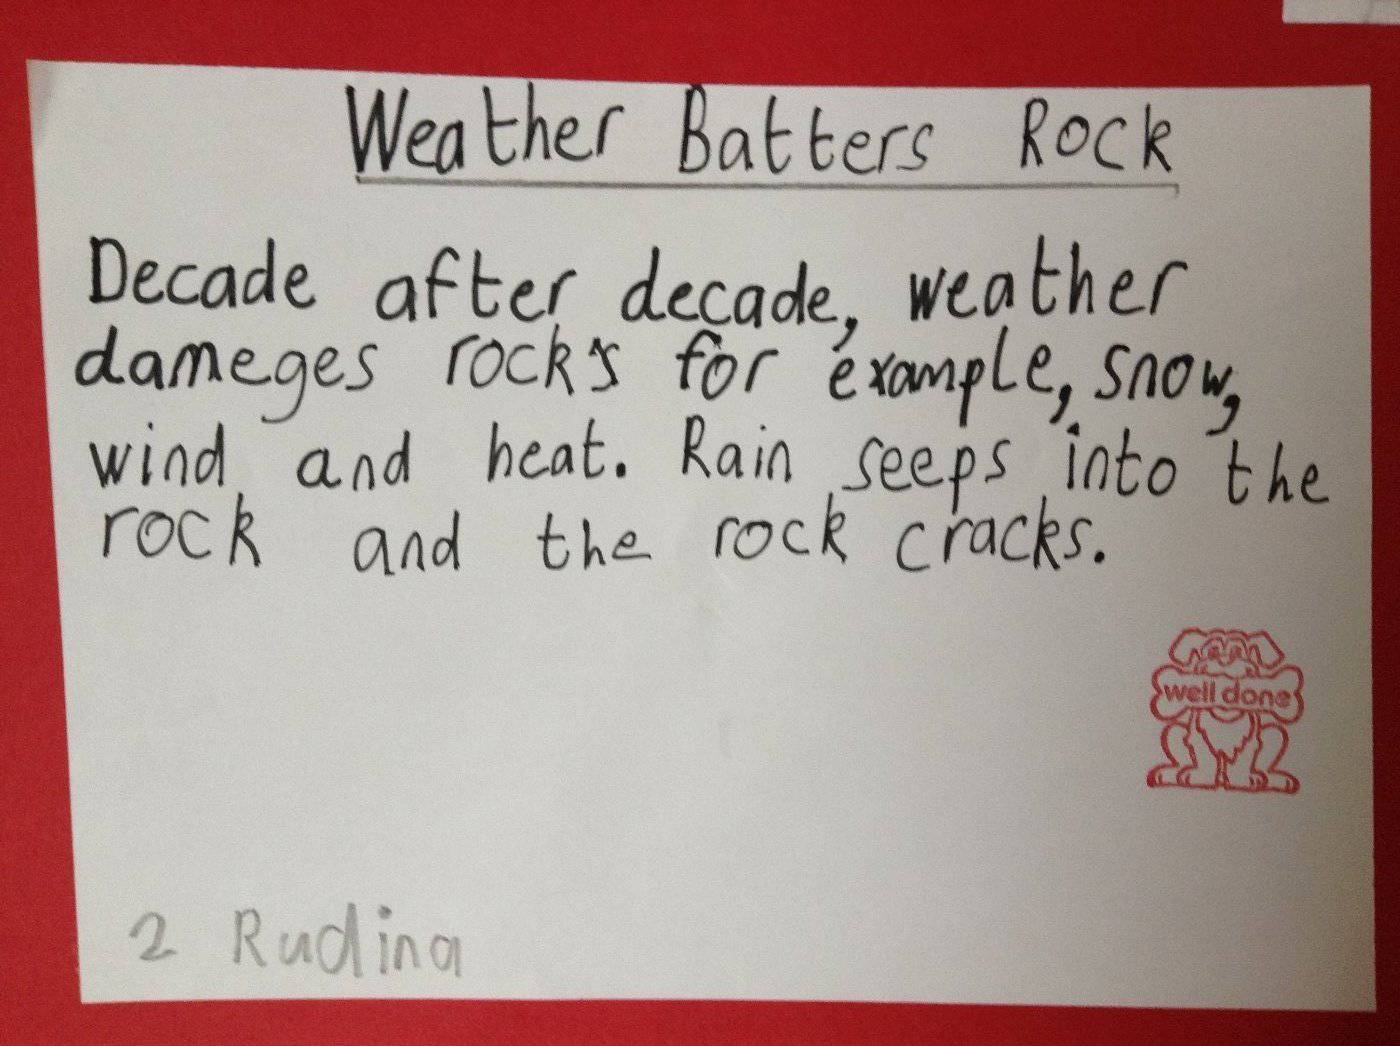 Weather Batters Rock
Decade after decade, weather
dameges rocks for example, snow,
wind and heat. Rain seeps into the
rock and the rock cracks.
well done
2 Rudina